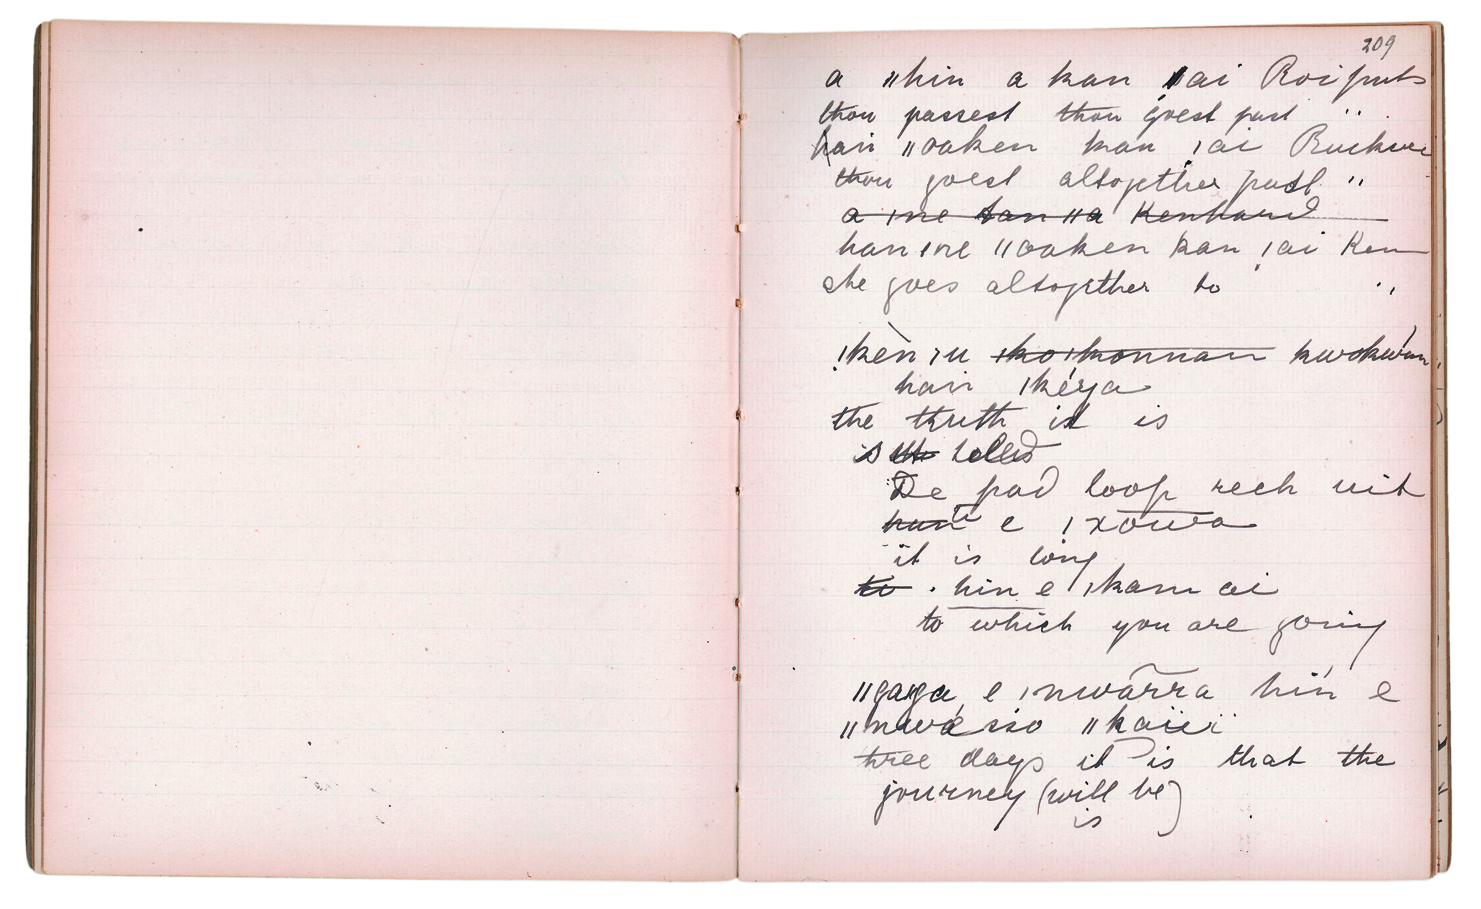 209
a ǁhin a kan ǀai Roiputs
thou passest thou goest past "
hain ǁoaken kan ǀai
thou goest altogether past "
a ǀne tan ǁa Kenhard
han ǀne ǁoaken kan ǀai Ken
she goes altogether to "
ǃkèn ǀu ǀko ǀkonnan
hain ǀkéya
the truth it is
is the tolled
De pad loop rech uit
han ti e ǃxouwa
it is long
to hin e ǀkam ai
to which you are going
ǁgaga e ǀnwārra hin e
ǁnwásso ǁkaïï
three days it is that the
journey (will be)
is